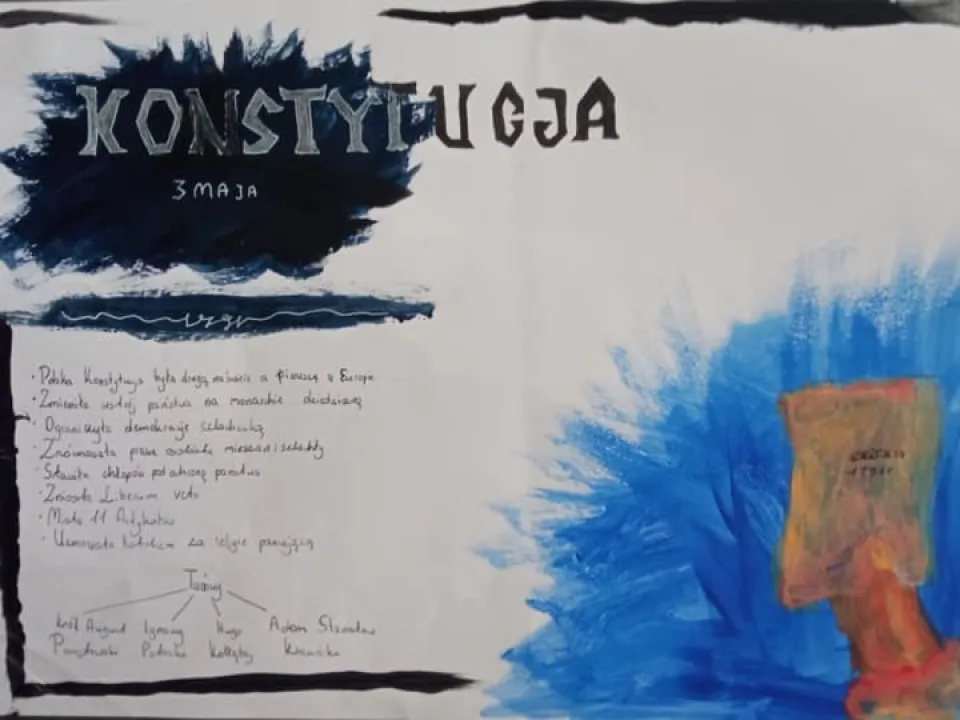 KONSTYTUCJA
3 MAJA
1791
· Polska Konstytucja była drugą na świecie a pierwszą w Europie
· Zmieniła ustrój państwa na monarchie dziedziczną
· Ograniczyła demokracje szlachecką
· Zrównała prawa osobiste mieszczan i szlachty
· Stawiała chłopów pod ochroną państwa
· Zniosła Liberum veto
· Miała 11 Artykułów
· Uznawała katolicyzm za religie panującą
Twórcy
Król August Ignacy Hugo Adam Stanisław
Poniatowski Potocki Kołłątaj Krasiński
1791